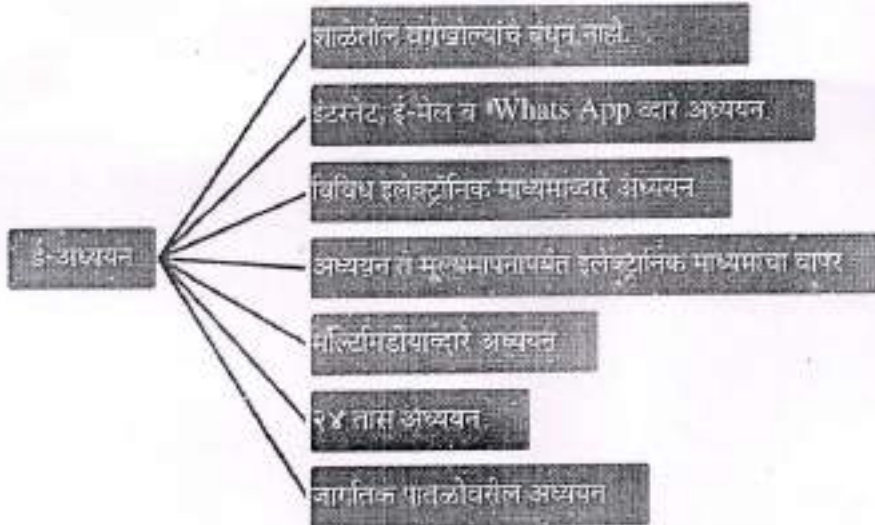 शाळेतील वर्गखोल्यांचे बंधन नाही.
इंटरनेट, ई-मेल व Whats App व्दारे अध्ययन
विविध इलेक्ट्रॉनिक माध्यमाव्दारे अध्ययन
ई-अध्ययन
अध्ययन ते मूल्यमापनापर्यंत इलेक्ट्रानिक माध्यमाचा वापर
मल्टिमिडीयाव्दारे अध्ययन
२४ तास अध्ययन
जागतिक पातळीवरील अध्ययन